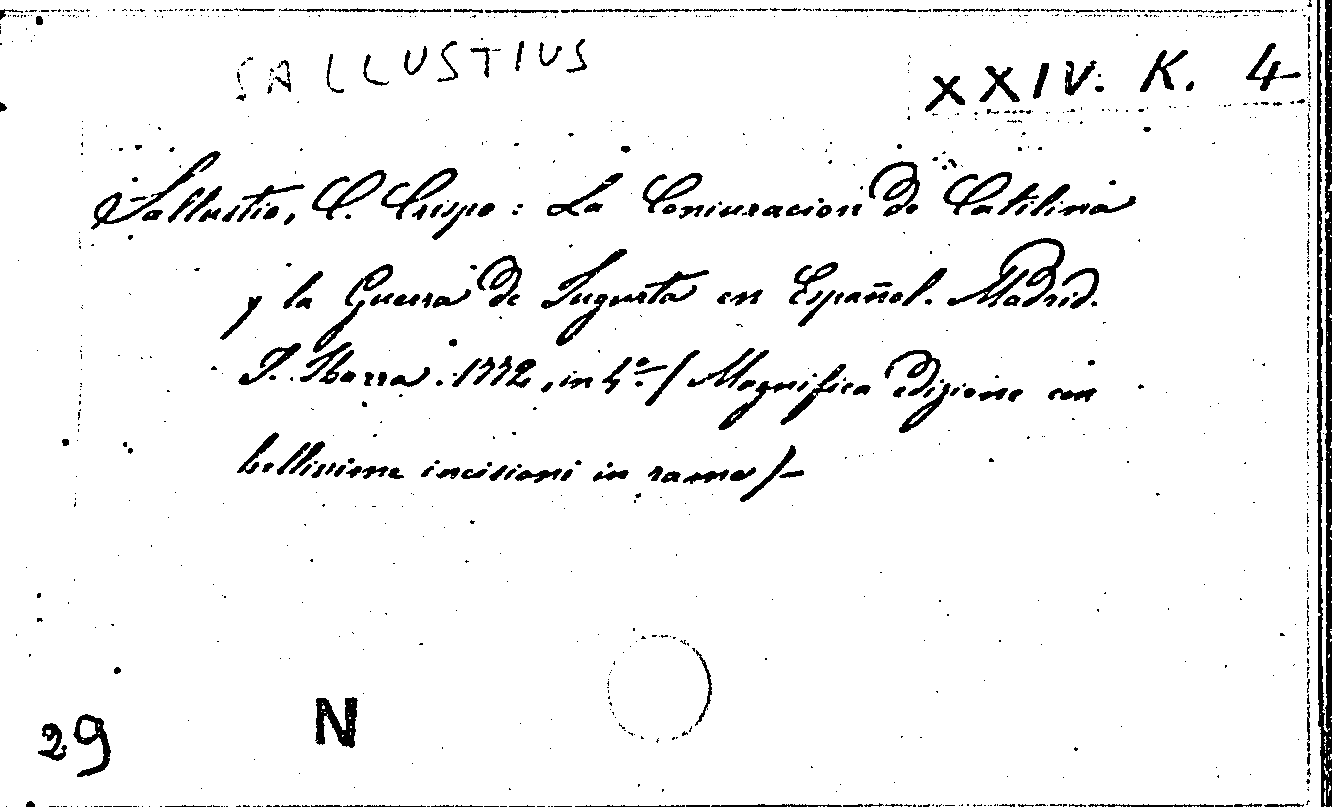 SALLUSTIUS
XXIV. K. 4
Sallustio, C. Crispo: La Coniuracion de Catilina
y la Guerra de Jugurta en Español. Madrid.
J. Ibarra. 1772, in 4° / Magnifica edizione con
bellissime incisioni in rame / -
29
N